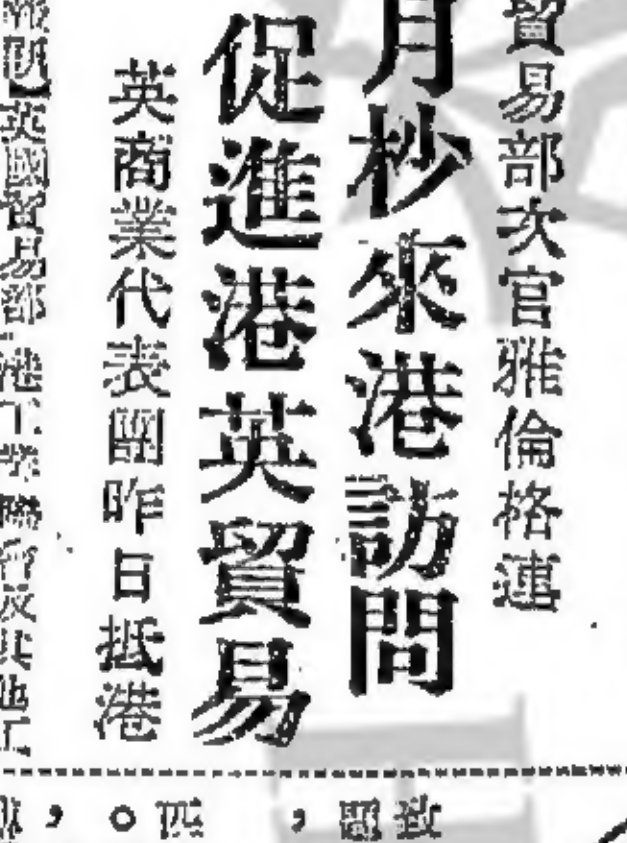 貿易部次官雅倫格連
月杪來港訪問
促進港英貿易
英商業代表團昨日抵港
英國貿易部
港工業聯會及其他工